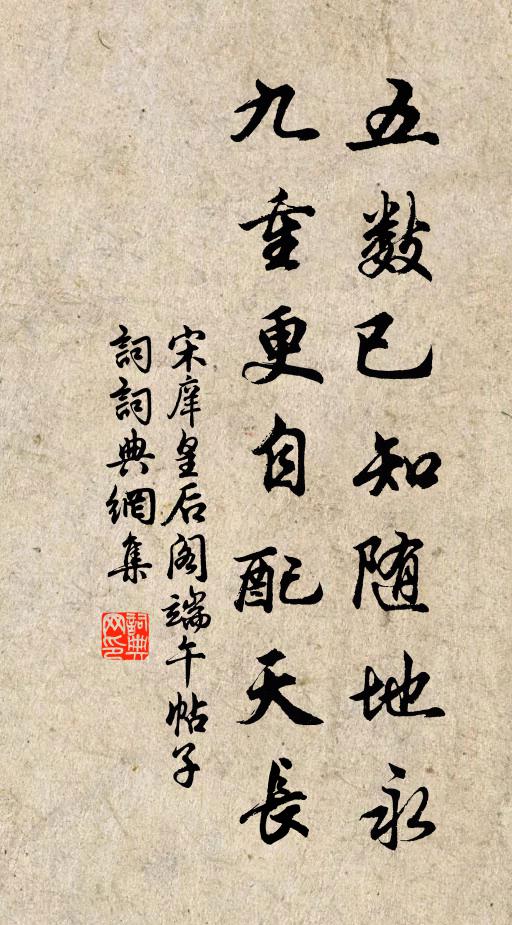 五数已知随地永
九重更自配天長
宋庠皇后阁端午帖子
詞詞典網集
詞典网印